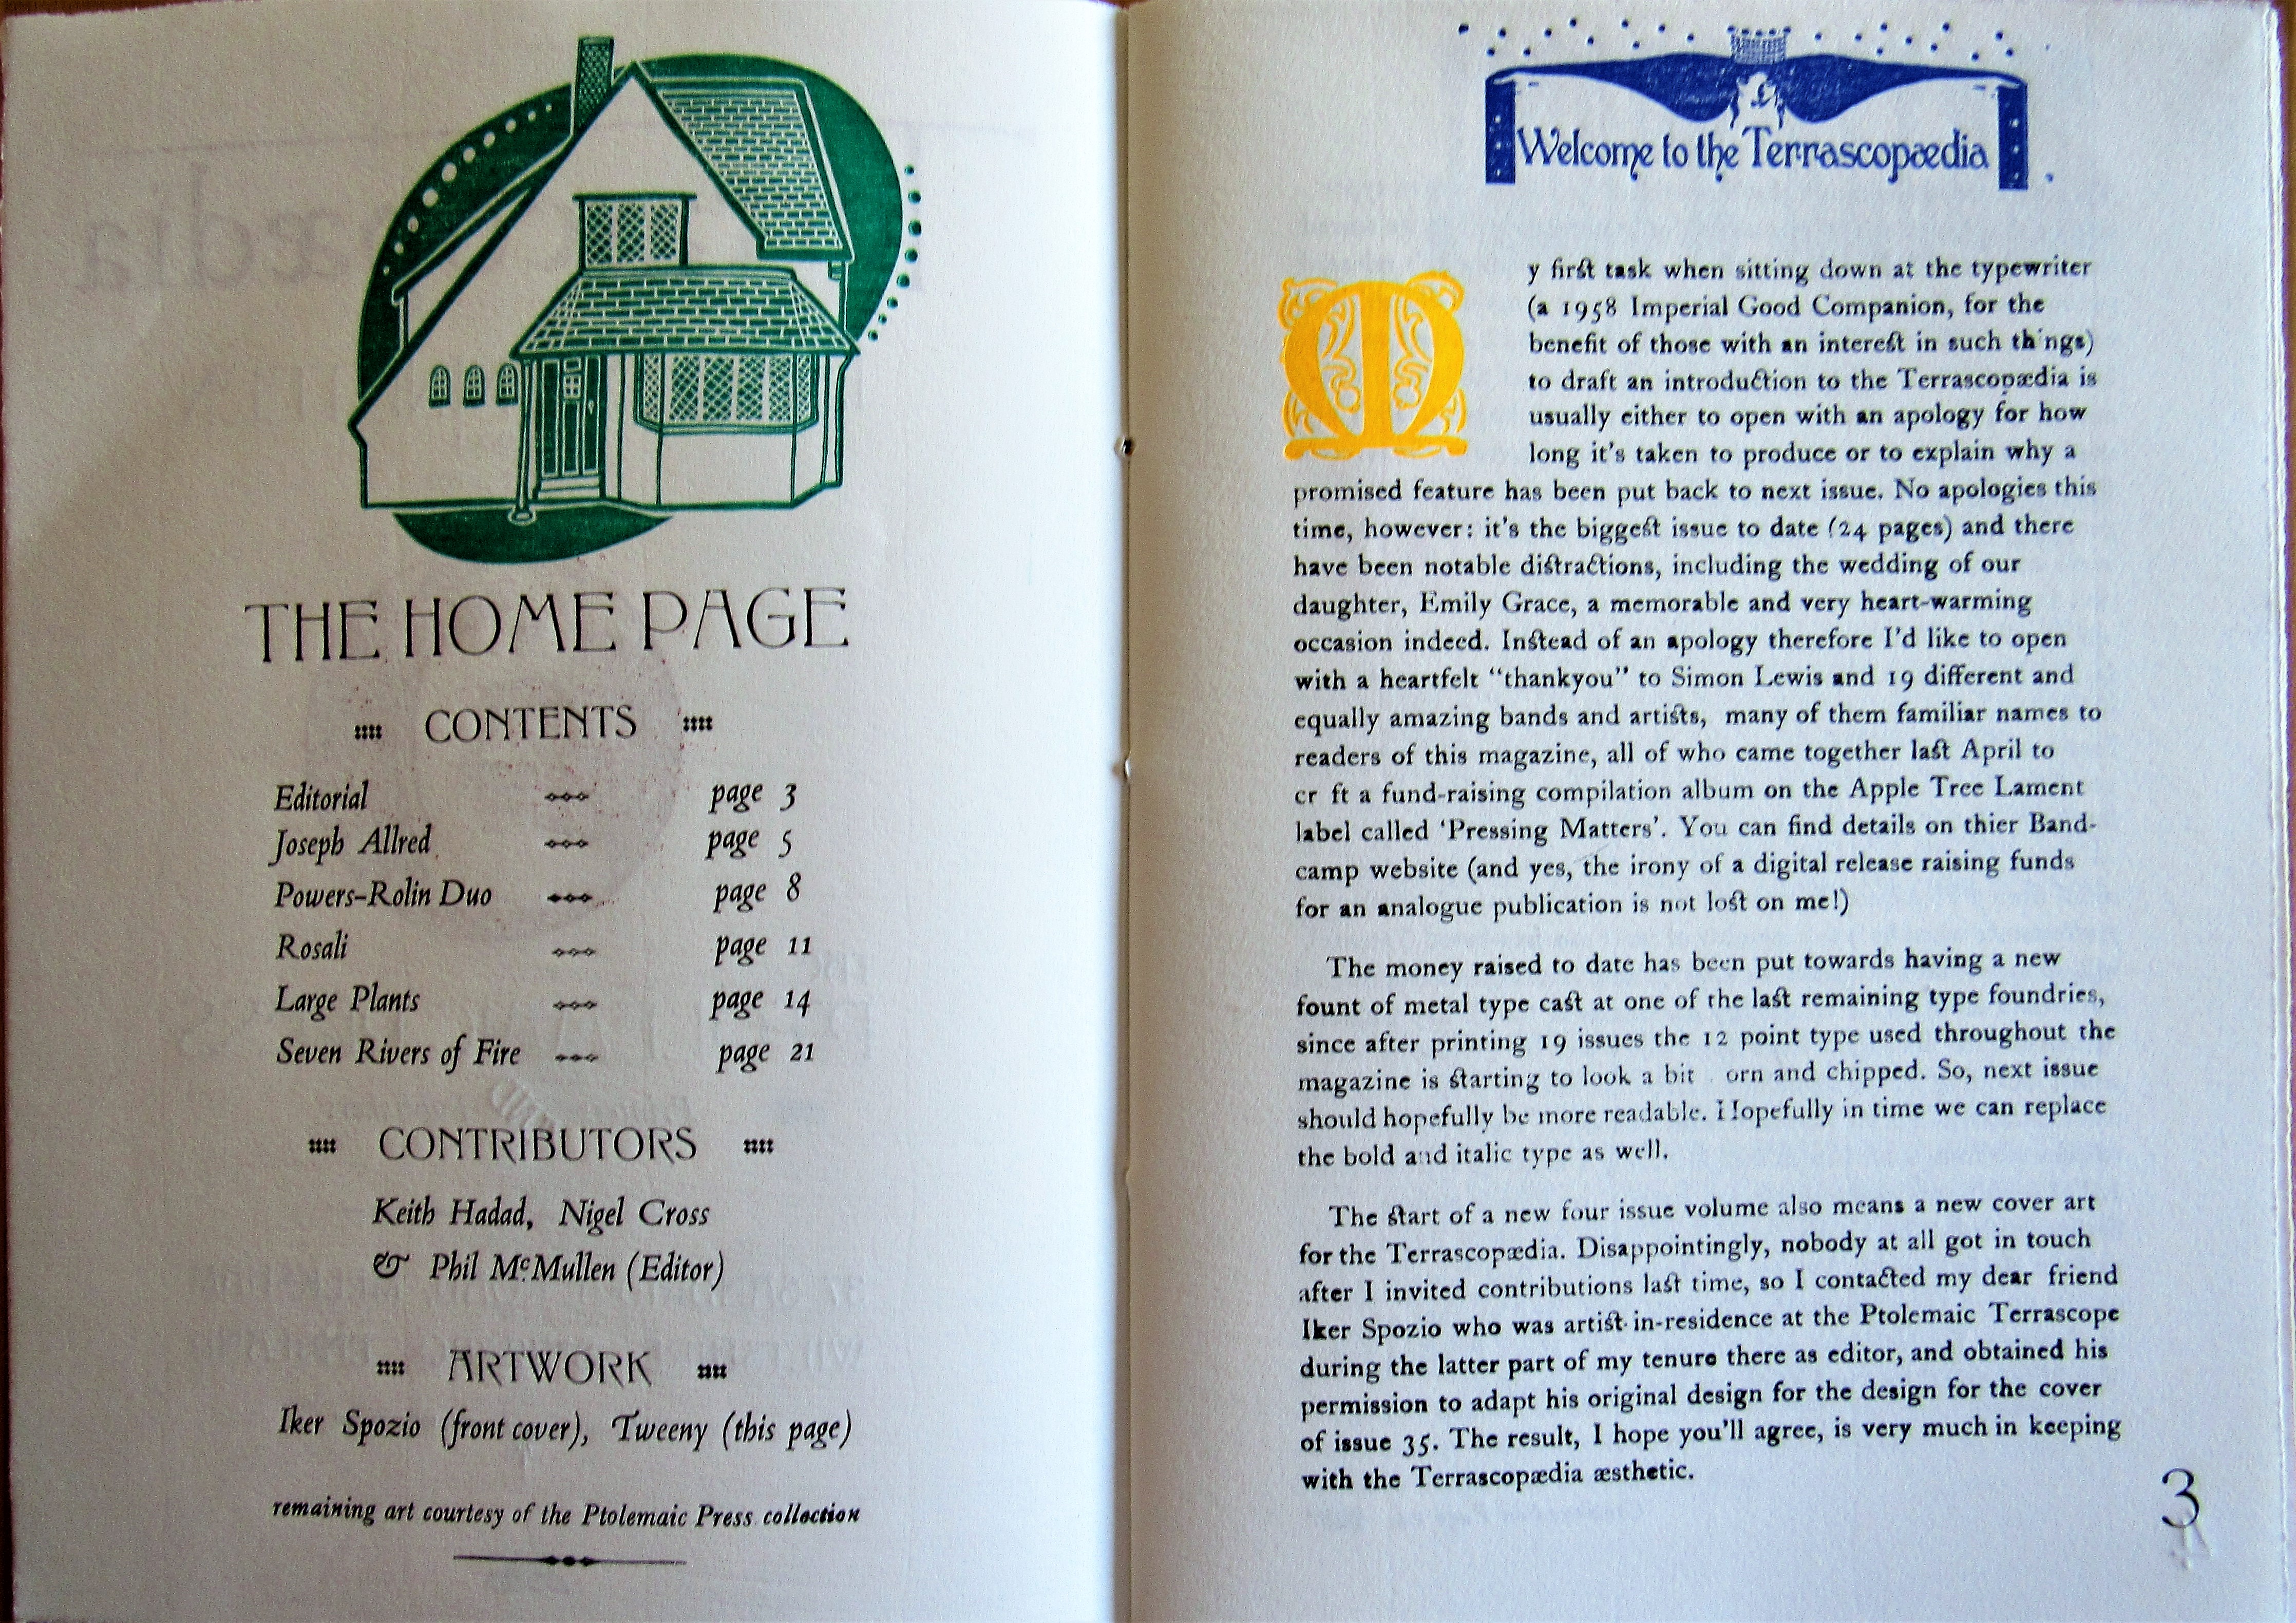 THE HOME PAGE
CONTENTS
Editorial page 3
Joseph Allred page 5
Powers-Rolin Duo page 8
Rosali page 11
Large Plants page 14
Seven Rivers of Fire page 21
CONTRIBUTORS
Keith Hadad, Nigel Cross
& Phil McMullen (Editor)
ARTWORK
Iker Spozio (front cover), Tweeny (this page)
remaining art courtesy of the Ptolemaic Press collection
Welcome to the Terrascopædia
My first task when sitting down at the typewriter
(a 1958 Imperial Good Companion, for the
benefit of those with an interest in such th ngs)
to draft an introduction to the Terrascopædia is
usually either to open with an apology for how
long it's taken to produce or to explain why a
promised feature has been put back to next issue. No apologies this
time, however: it's the biggest issue to date (24 pages) and there
have been notable distractions, including the wedding of our
daughter, Emily Grace, a memorable and very heart-warming
occasion indeed. Instead of an apology therefore I'd like to open
with a heartfelt "thankyou" to Simon Lewis and 19 different and
equally amazing bands and artists, many of them familiar names to
readers of this magazine, all of who came together last April to
cr ft a fund-raising compilation album on the Apple Tree Lament
label called 'Pressing Matters'. You can find details on thier Band-
camp website (and yes, the irony of a digital release raising funds
for an analogue publication is not lost on me!)
The money raised to date has been put towards having a new
fount of metal type cast at one of the last remaining type foundries,
since after printing 19 issues the 12 point type used throughout the
magazine is starting to look a bit orn and chipped. So, next issue
should hopefully be more readable. Hopefully in time we can replace
the bold and italic type as well.
The start of a new four issue volume also means a new cover art
for the Terrascopædia. Disappointingly, nobody at all got in touch
after I invited contributions last time, so I contacted my dear friend
Iker Spozio who was artist-in-residence at the Ptolemaic Terrascope
during the latter part of my tenure there as editor, and obtained his
permission to adapt his original design for the design for the cover
of issue 35. The result, I hope you'll agree, is very much in keeping
with the Terrascopædia æsthetic.
3